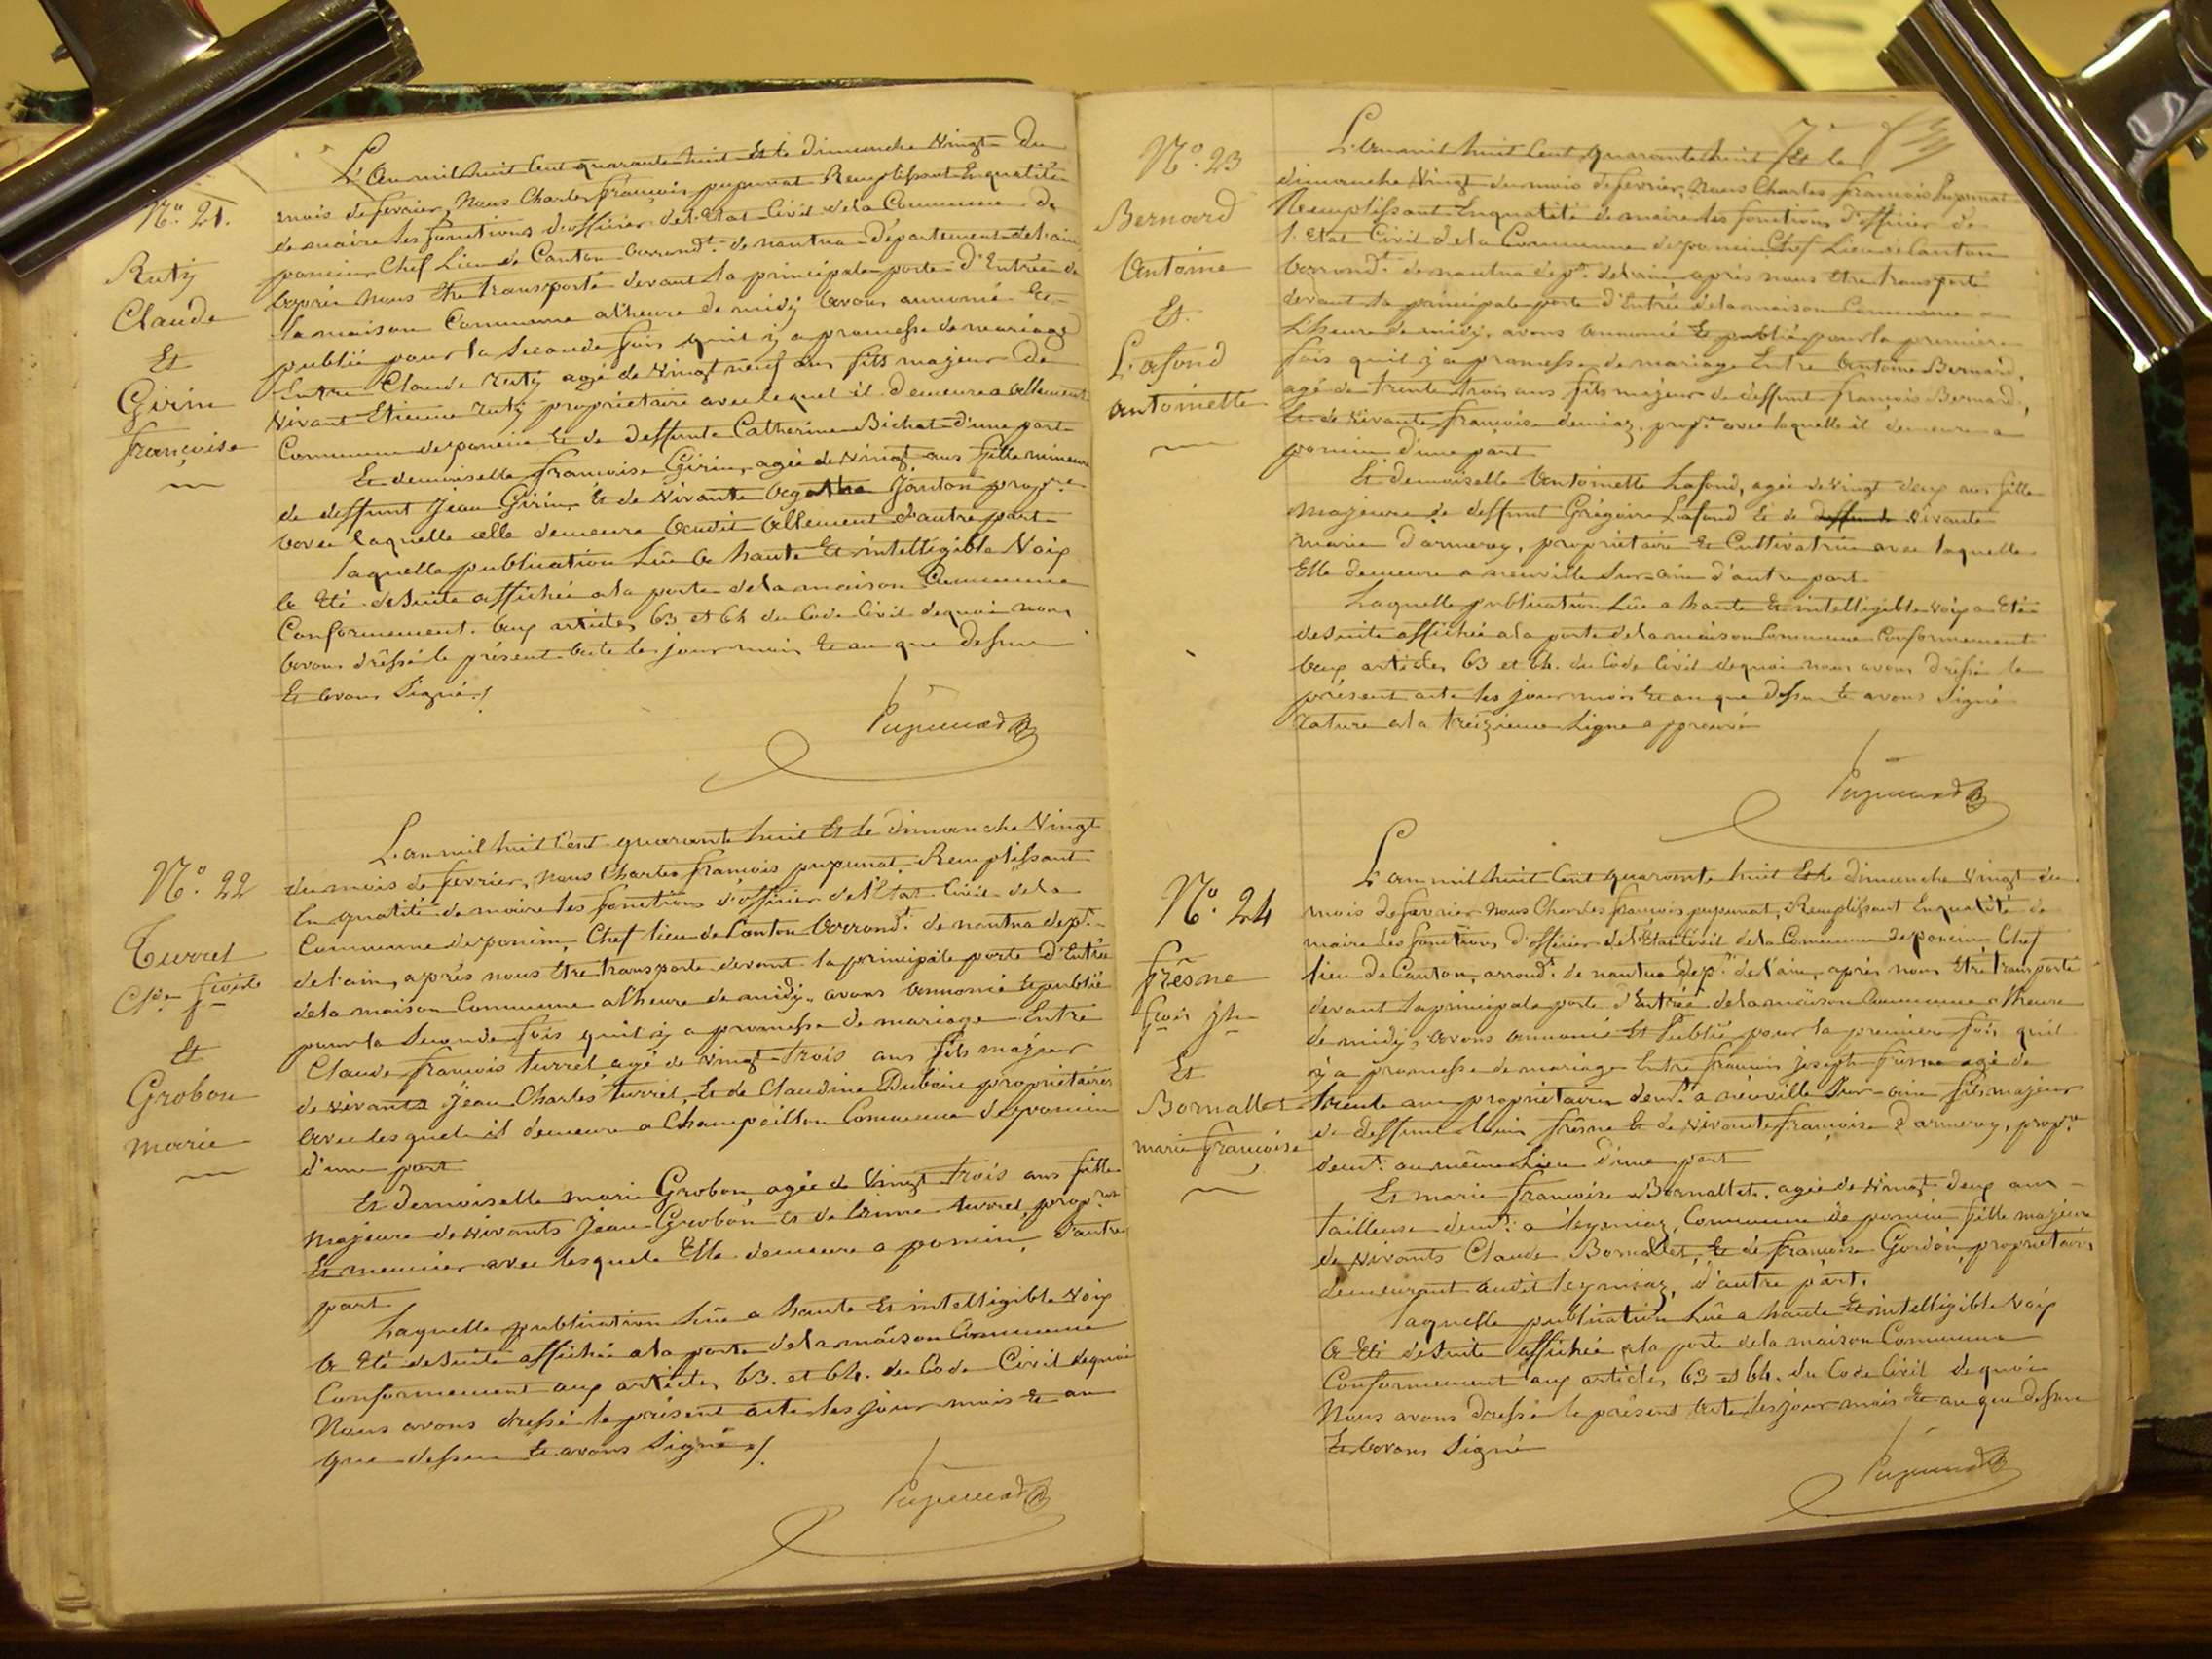 N.o 21.
Ruty
Claude
Et
Girin
françoise
L'an mil huit Cent quarante huit Et le dimanche Vingt du
mois de fevrier, Nous Charles françois pupunat Remplissant Enqualité
de maire les fonctions d'officier de l'Etat Civil de la Commune de
poncin, Chef Lieu de Canton Arrond.t de nantua département de l'ain
Après nous être transporté devant la principale porte d'Entrée de
la maison Commune a l'heure de midy avons annoncé Et
publié pour la seconde fois qu'il y a promesse de mariage
Entre Claude Ruty agé de Vingt neuf ans fils majeur de
Vivant Etienne ruty propriétaire avec lequel il demeure a Allement
Commune de poncin Et de deffunte Catherine Bichat d'une part
Et demoiselle françoise Girin, agée de vingt ans fille mineure
de deffunt Jean Girin, Et de Vivante Agathe Janton prop.re
avec laquelle elle demeure Audit Allement d'autre part
laquelle publication Lûe A haute Et intelligible Voix
A Eté de suite affichée a la porte de la maison Commune
Conformement Aux articles 63 et 64 du Code Civil dequoi nous
avons dressé le présent Acte les jour mois Et an que dessus
Et Avons Signé /
Pupunat
N.o 22
Turrel
C.de f.cois
Et
Grobon
marie
L'an mil huit Cent quarante huit Et le dimanche Vingt
du mois de fevrier, Nous Charles françois pupunat, Remplissant
En qualité de maire les fonctions d'officier de l'Etat Civil de la
Commune de poncin, Chef lieu de Canton Arrond.t de nantua dep.t
de l'ain, après nous être transporté devant la principale porte d'Entrée
de la maison Commune a l'heure de midy, avons Annoncé Et publié
pour la seconde fois qu'il y a promesse de mariage Entre
Claude françois turrel agé de vingt trois ans fils majeur
de vivants Jean Charles turrel, Et de Claudine Dubois propriétaires
Avec lesquels il demeure a Champeillon Commune de poncin
d'une part
Et demoiselle marie Grobon agée de Vingt trois ans fille
majeure de vivants Jean Grobon Et de turrel, prop.res
Et meunier avec lesquels Elle demeure a poncin, d'autre
part
Laquelle publication Lûe a haute Et intelligible Voix
A Eté de suite affichée a la porte de la maison Commune
Conformement aux articles 63. et 64. du Code Civil dequoi
Nous avons dressé le présent acte les jour mois Et an
que dessus Et avons Signé /.
Pupunat
N.o 23
Bernard
Antoine
Et
Lafond
antoinette
L'an mil huit Cent quarante huit Et le
dimanche Vingt du mois de fevrier, Nous Charles francois Pupunat
Remplissant Enqualité de maire les fonctions d'officier de
l'Etat Civil de la Commune de poncin Chef Lieu de Canton
Arrond.t de nantua dep.t de l'ain, après nous être transporté
devant la principale porte d'Entrée de la maison Commune a
L'heure de midy, avons Annoncé Et publié pour la première
fois qu'il y a promesse de mariage Entre Antoine Bernard,
agé de trente trois ans fils majeur de deffunt françois Bernard,
Et de Vivante françoise prop.re avec laquelle il demeure a
poncin d'une part
Et demoiselle Antoinette Lafond, agée de Vingt deux ans fille
majeure de deffunt Grégoire Lafond Et de deffunte Vivante
marie Darmeray, propriétaire Et Cultivatrice avec laquelle
Elle demeure a neuville Sur-ain d'autre part
Laquelle publication Lûe a haute Et intelligible voix a Eté
de suite affichée a la porte de la maison Commune Conformement
Aux articles 63 et 64. du Code Civil dequoi nous avons dressé le
présent acte les jour mois Et an que dessus Et avons Signé
rature a la treizieme ligne approuvé
Pupunat
N.o 24
frêsne
f.cois j.ph
Et
Bornallet
marie françoise
L'an mil huit Cent quarente huit Et le dimanche vingt du
mois de fevrier Nous Charles françois pupunat, Remplissant Enqualité de
maire les fonctions d'officier de l'Etat Civil de la Commune de poncin, Chef
lieu de Canton, arrond.t de nantua Dép.t de l'ain, après nous être transporté
devant la principale porte d'Entrée de la maison Commune a l'heure
de midy, Avons annoncé Et Publié pour la premiere fois, qu'il
y a promesse de mariage Entre francois joseph frêsne agé de
trente ans propriétaire dem.t a neuville Sur-ain fils majeur
de deffunt Louis frêsne Et de vivante françoise Darmeray, prop.re
dem.t au même Lieu d'une part
Et marie françoise Bornallet, agée de vingt deux ans
tailleuse dem.t a leymiaz, Commune de poncin fille majeure
de Vivants Claude Bornallet, Et de françoise Gordon, propriétaires
demeurant audit leymiaz, d'autre part.
laquelle publication Lûe a haute Et intelligible voix
A Eté de suite affichée a la porte de la maison Commune
Conformement aux articles 63 et 64. du Code Civil dequoi
Nous avons dressé le présent Acte les jour mois Et an que dessus
Et Avons Signé
Pupunat